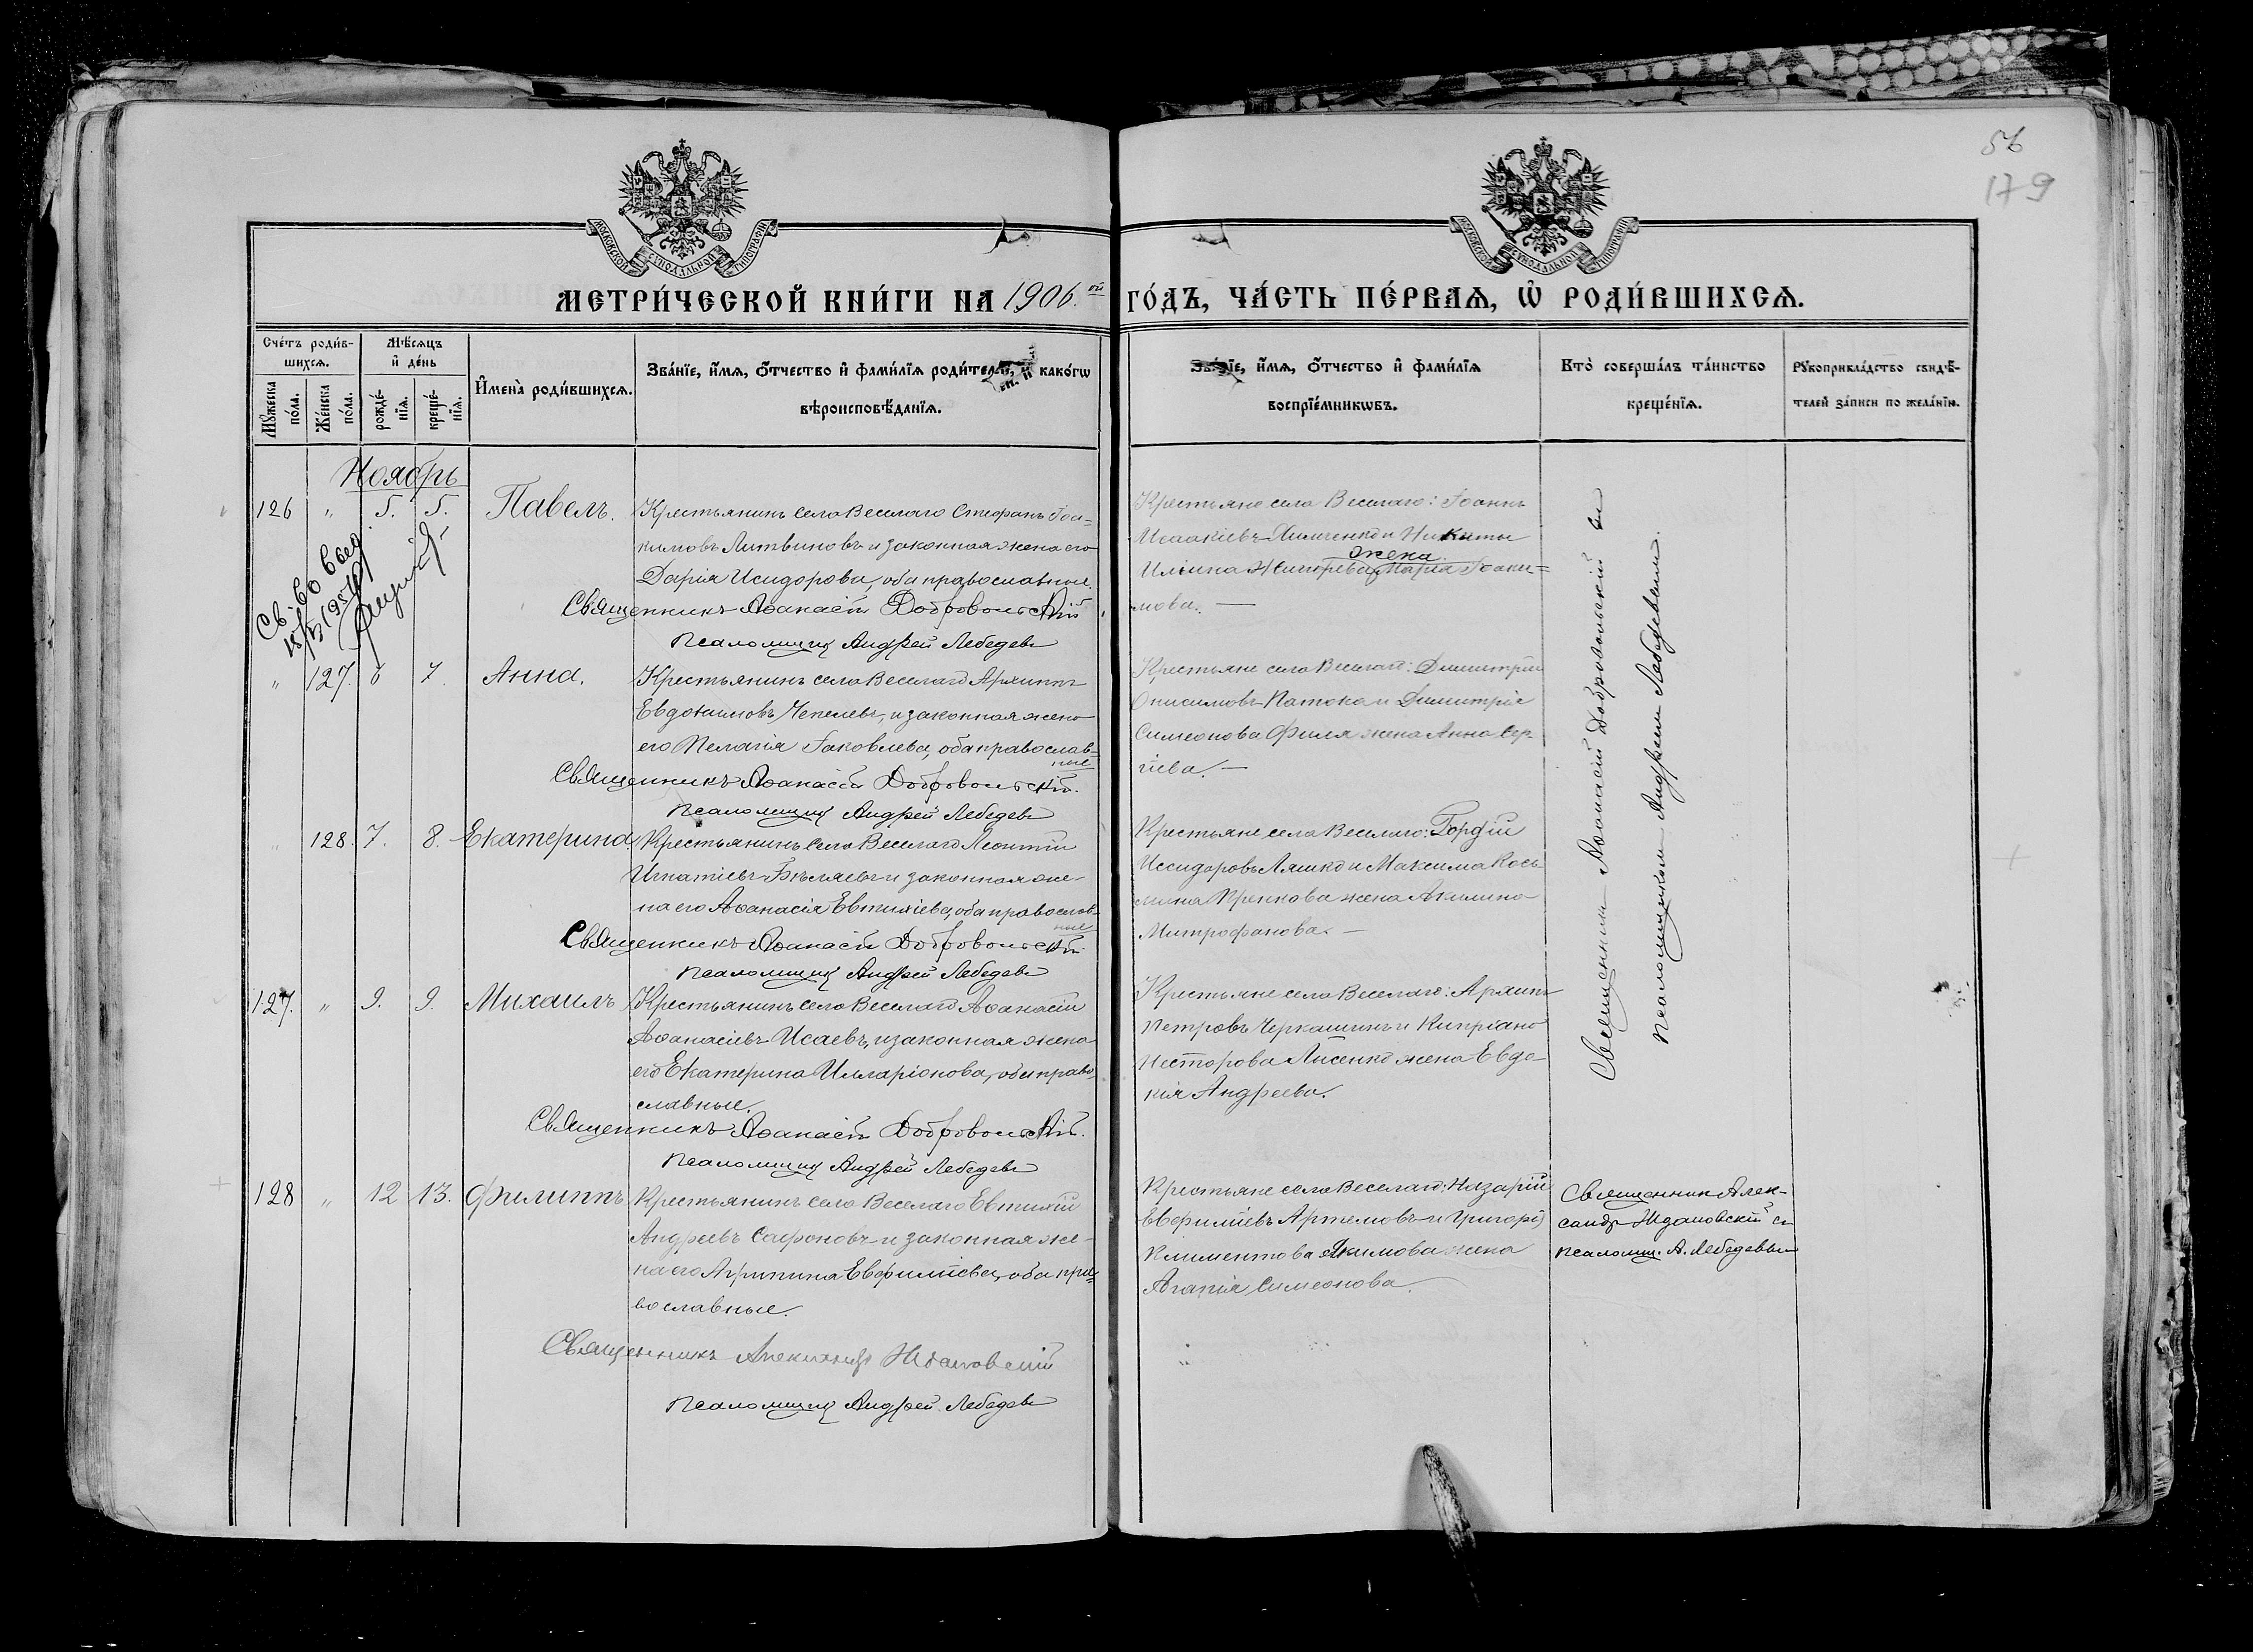 56
179
МОСКОВСКОЙ СѴНОДАЛЬНОЙ ТИПОГРАФІИ
МОСКОВСКОЙ СѴНОДАЛЬНОЙ ТИПОГРАФІИ
МЕТРИ́ЧЕСКОЙ КНИ́ГИ НА 1906.ой
ГО́ДЪ, ЧА́СТЬ ПЕ́РВАѦ, Ѡ҆ РОДИ́ВШИХСѦ.
Сче́тъ роди́в-
шихсѧ.
Мѣ́сѧцъ
и҆ де́нь
Мꙋ́жеска по́ла.
Же́нска по́ла.
рожде́-нїѧ.
креще́-нїѧ.
И҆мена̀ роди́вшихсѧ.
Зва́нїе, и҆́мѧ, ѻ҆́тчество и҆ фами́лїѧ роди́телей, и҆ како́гѡ
вѣроисповѣ́данїѧ.
Зва́нїе, и҆́мѧ, ѻ҆́тчество и҆ фами́лїѧ
воспрїе́мникѡвъ.
Кто̀ соверша́лъ та́инство
креще́нїѧ.
Рꙋкоприкла́дство свидѣ́-
телей за́писи по жела́нїю.
Ноябрь
126 " 5. 5. Павелъ.
Крестьянинъ села Веселаго Стефанъ Іоа-
кимовъ Литвиновъ и законная жена его
Дарія Исидорова, оба православные.
Священникъ Аѳанасій Добровольскій
Псаломщикъ Андрей Лебедевъ
Крестьяне села Веселаго: Іоаннъ
Исаакіевъ и Никиты
жена
Марія Іоаки-
мова. —
Св-во выд.
" 127. 6 7. Анна.
Крестьянинъ села Веселаго Архиппъ
Евдокимовъ Чепелевъ, и законная жена
его Пелагія Іаковлева, оба православ-
ные
Священникъ Аѳанасій Добровольскій.
Псаломщикъ Андрей Лебедевъ
Крестьяне села Веселаго: Димитрій
Онисимовъ Патока и Димитрія
Симеонова Филя жена Анна Сер-
гіева. —
" 128. 7. 8. Екатерина.
Крестьянинъ села Веселаго Леонтій
Игнатіевъ Бѣляевъ и законная же-
на его Аѳанасія Евтихіева, оба православ-
ные
Священникъ Аѳанасій Добровольскій.
Псаломщикъ Андрей Лебедевъ
Крестьяне села Веселаго: Гордій
Исидоровъ Ляшко и Максима Кось-
мина жена Акилина
Митрофанова. —
127. " 9. 9. Михаилъ
Крестьянинъ села Веселаго Аѳанасій
Аѳанасіевъ Исаевъ, и законная жена
его Екатерина Илларіонова, оба право-
славные.
Священникъ Аѳанасій Добровольскій.
Псаломщикъ Андрей Лебедевъ
Крестьяне села Веселаго: Архипъ
Петровъ Черкашинъ и Кипріана
Несторова Лисенко жена Евдо-
кія Андреева.
Священникъ Аѳанасій Добровольскій съ
псаломщикомъ Андреемъ Лебедевымъ.
128 " 12 13. Филиппъ
Крестьянинъ села Веселаго Евтихій
Андреевъ Сафоновъ и законная же-
на его Агрипина Евфиміева, оба пра-
вославные.
Священникъ Александръ Ждановскій
Псаломщикъ Андрей Лебедевъ
Крестьяне села Веселаго: Назарій
Евфиміевъ Артемовъ и Григорія
Климентова Акимова жена
Агапія Симеонова.
Священник Алек-
сандр Ждановскій съ
псаломщ. А. Лебедевым